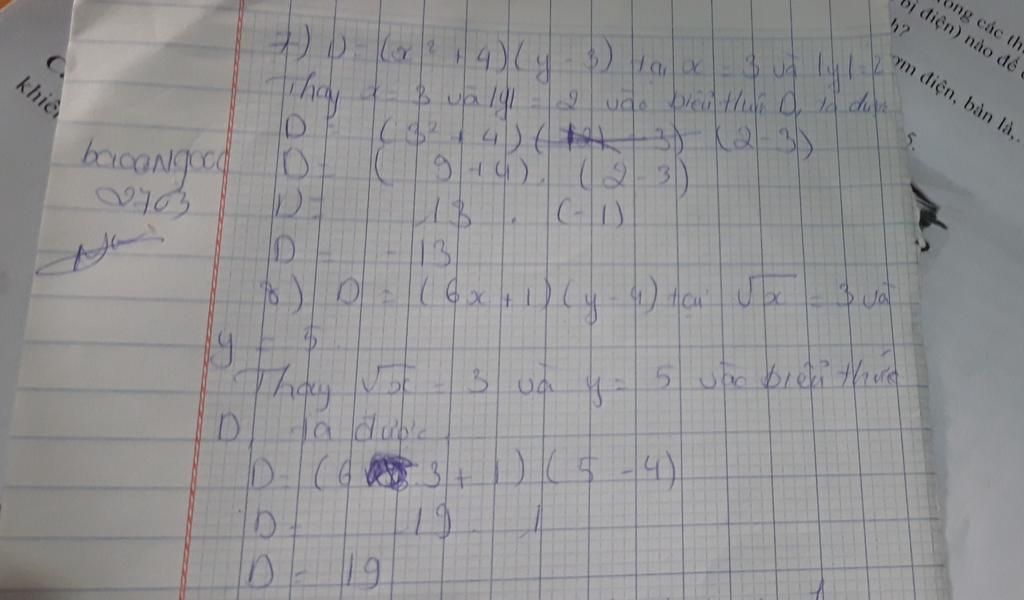 7) D = (x² + 4)(y - 3) tại x = 3 và |y| = 2
Thay x = 3 và |y| = 2 vào biểu thức D, ta được
D = (3² + 4) (2 - 3)
D = ( 9 + 4) . (2 - 3)
D = 13 . (-1)
D = - 13
8) D = (6x + 1)(y - 4) tại √x = 3 và
y = 5
Thay √x = 3 và y = 5 vào biểu thức
D ta được
D = (6 3 + 1) (5 - 4)
D = 19 . 1
D = 19
baoongocc
02703
khiể
C.
bị điện) nào để
h?
ơm điện, bàn là...
5.